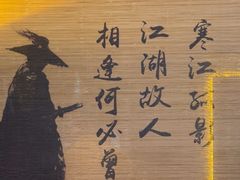 寒江孤影
江湖故人
相逢何必曾